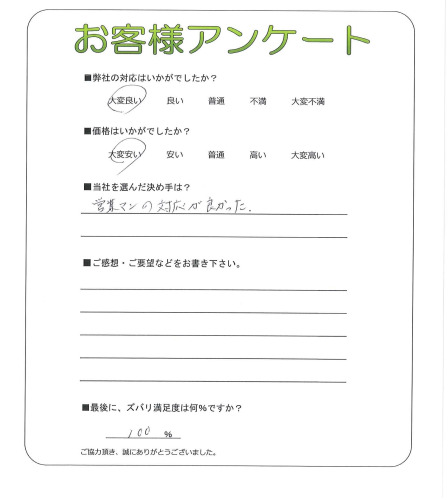 お客様アンケート
■弊社の対応はいかがでしたか?
大変良い 良い 普通 不満 大変不満
■価格はいかがでしたか?
大変安い 安い 普通 高い 大変高い
■当社を選んだ決め手は?
営業マンの対応が良かった.
■ご感想・ご要望などをお書き下さい。
■最後に、ズバリ満足度は何%ですか?
100 %
ご協力頂き、誠にありがとうございました。